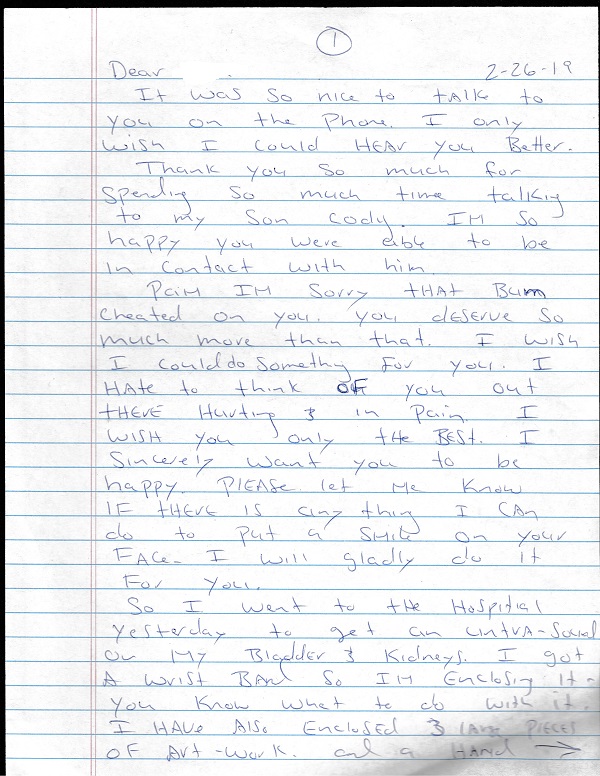 1
Dear 2-26-19
It was so nice to tAlk to
you on the Phone. I only
wish I could HEAr you Better.
Thank you so much for
spending so much time talking
to my Son Cody. IM so
happy you were able to be
in contact with him
PaiM IM Sorry tHAt Bum
cheated on you. you dESErvE so
much more than that. I wish
I could do something For you. I
HAte to think OF you out
tHErE Hurting & in Pain. I
WISH you only tHE BEST. I
Sincerely want you to be
happy. PlEASE let ME Know
IF tHErE IS any thing I CAN
do to Put a SMilE on your
FAcE. I will gladly do it
For you.
So I went to tHE HospitiAl
yesterday to get an untrA-Sound
on My Bladder & Kidneys. I got
A wrist BAnd So IM Enclosing it-
you Know what to do with it.
I HAVE Also Enclosed 3 large PIECES
OF Art-work. and a HAND →